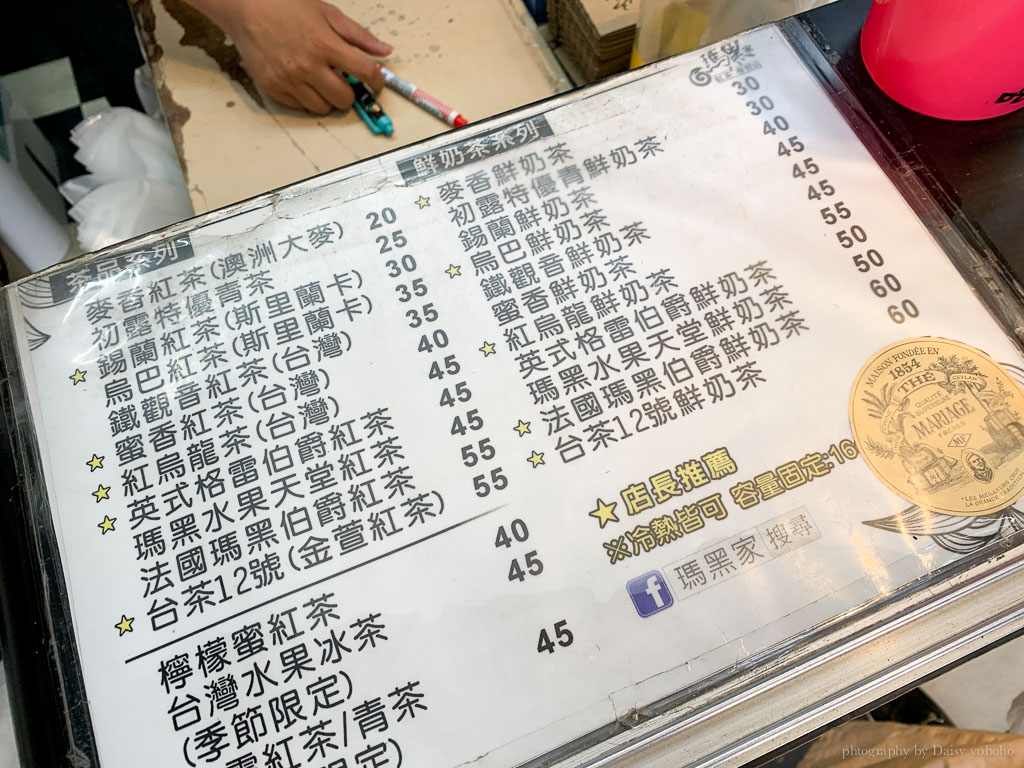 茶品系列
麥香紅茶(澳洲大麥) 20
初露特優青茶 25
錫蘭紅茶(斯里蘭卡) 30
烏巴紅茶(斯里蘭卡) 35
鐵觀音紅茶(台灣) 35
蜜香紅茶(台灣) 40
紅烏龍茶(台灣) 45
英式格雷伯爵紅茶 45
瑪黑水果天堂紅茶 45
法國瑪黑伯爵紅茶 55
台茶12號(金萱紅茶) 55
檸檬蜜紅茶 40
台灣水果冰茶 45
(季節限定)
紅茶/青茶 45
限定)
鮮奶茶系列
麥香鮮奶茶 30
初露特優青鮮奶茶 30
錫蘭鮮奶茶 40
烏巴鮮奶茶 45
鐵觀音鮮奶茶 45
蜜香鮮奶茶 45
紅烏龍鮮奶茶 55
英式格雷伯爵鮮奶茶 50
瑪黑水果天堂鮮奶茶 50
法國瑪黑伯爵鮮奶茶 60
台茶12號鮮奶茶 60
★店長推薦
※冷熱皆可 容量固定:16
f 瑪黑家 搜尋
MAISON FONDÉE EN
1854
THÉ
MARIAGE
FRÈRES
MF
photography by Daisy yohoho